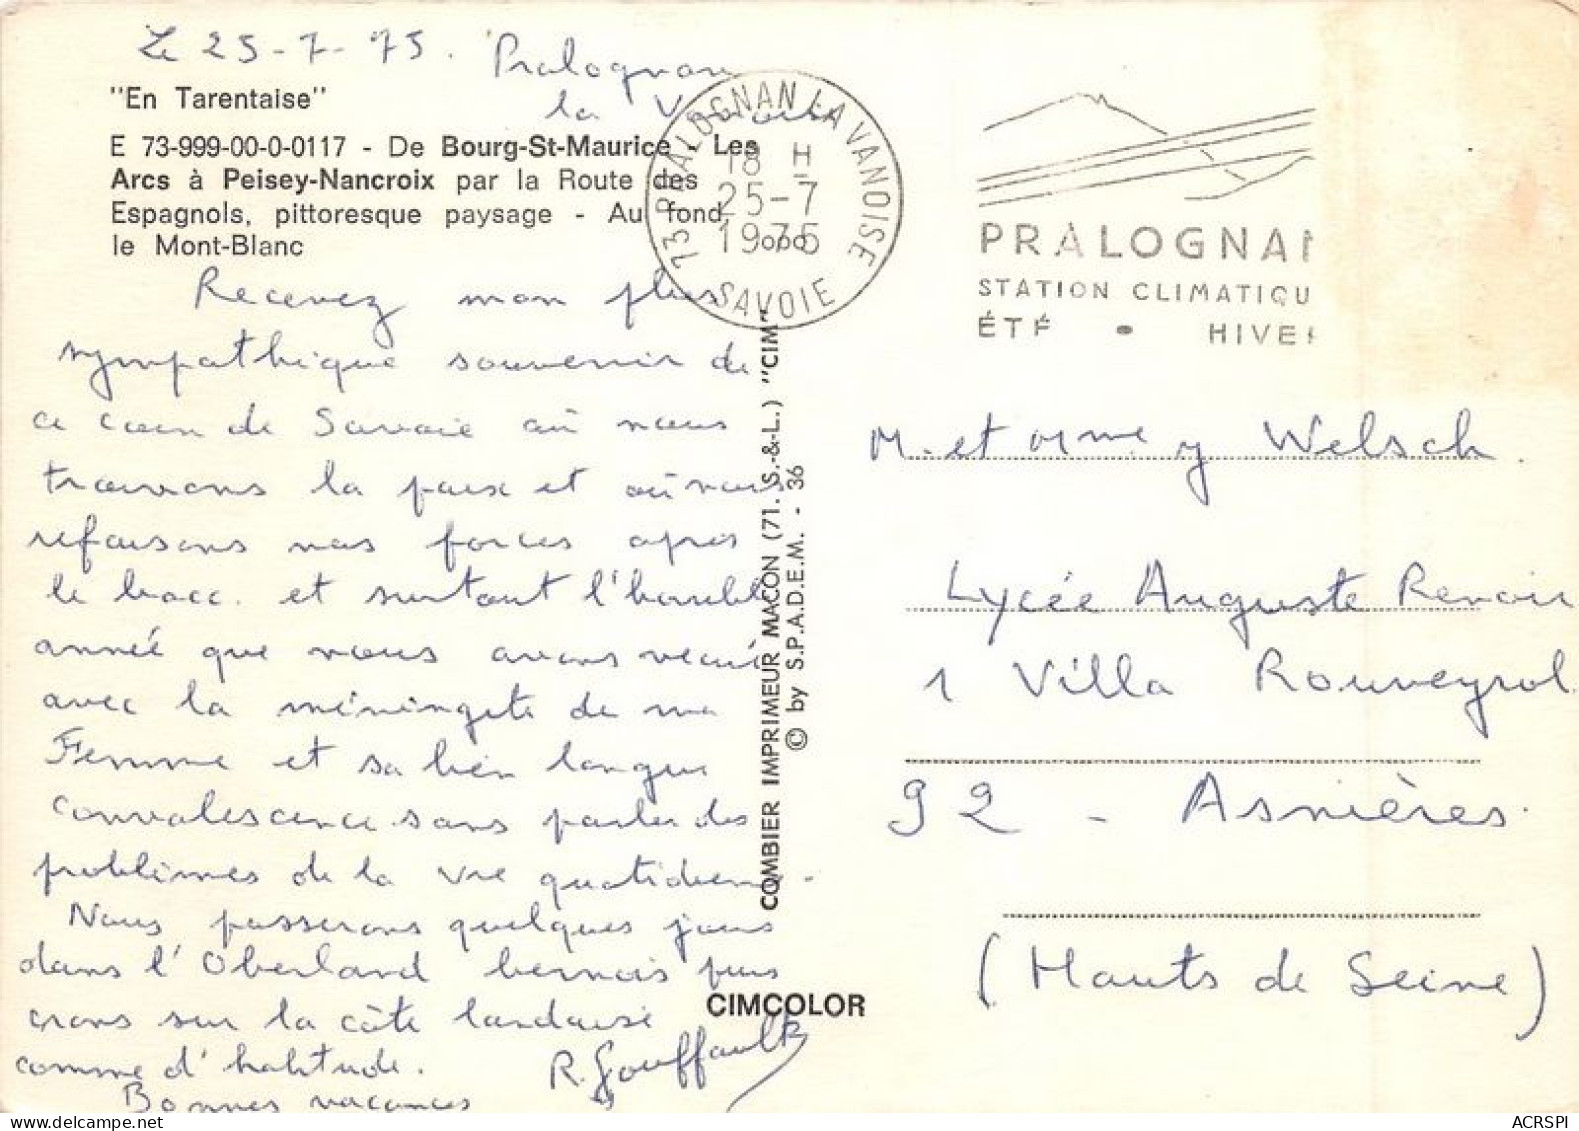 Le 25-7-75. Pralognan
la Vanoise
"En Tarentaise"
E 73-999-00-0-0117 - De Bourg-St-Maurice - Les
Arcs à Peisey-Nancroix par la Route des
Espagnols, pittoresque paysage - Au fond,
le Mont-Blanc
Recevez mon plus
sympathique souvenir de
ce coeur de Savoie où nous
trouvons la paix et où nous
refaisons nos forces après
le bacc. et surtout l'horrible
année que nous avons vécue
avec la méningite de ma
Femme et sa bien longue
convalescence sans parler des
problèmes de la vie quotidienne.
Nous passerons quelques jours
dans l'Oberland bernois puis
irons sur la côte landaise
comme d'habitude.
Bonnes vacances
R. Gouffault
73 PRALOGNAN LA VANOISE
18 H
25-7
1975
SAVOIE
PRALOGNAN
STATION CLIMATIQU
ÉTÉ • HIVER
COMBIER IMPRIMEUR MACON (71. S.-&-L.) "CIM"
© by S.P.A.D.E.M. - 36
CIMCOLOR
M. et Mme Welsch
Lycée Auguste Renoir
1 Villa Rouveyrol
92 - Asnières.
(Hauts de Seine)
ACRSPI